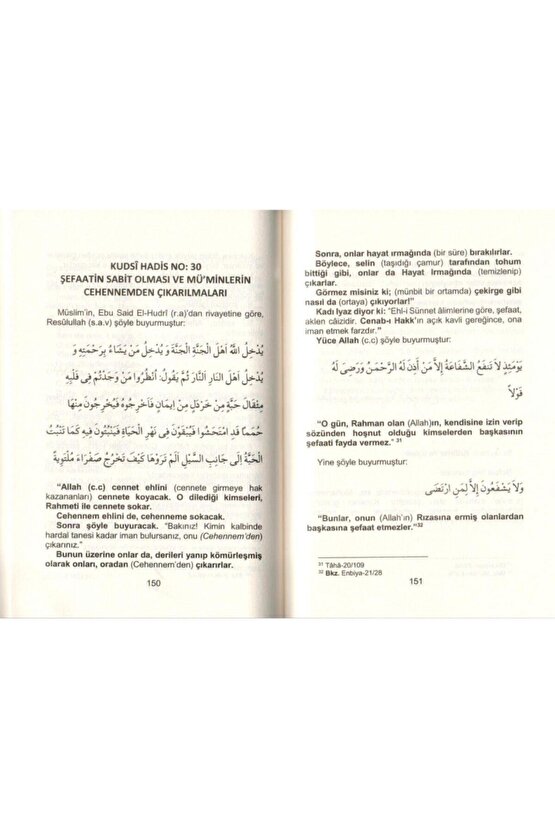 KUDSÎ HADİS NO: 30
ŞEFAATİN SABİT OLMASI VE MÜ'MİNLERİN
CEHENNEMDEN ÇIKARILMALARI
Müslim'in, Ebu Said El-Hudrî (r.a)'dan rivayetine göre,
Resûlullah (s.a.v) şöyle buyurmuştur:
يُدْخِلُ اللَّهُ أَهْلَ الْجَنَّةِ الْجَنَّةَ وَ يُدْخِلُ مَنْ يَشَاءُ بِرَحْمَتِهِ وَ
يُدْخِلُ أَهْلَ النَّارِ النَّارَ ثُمَّ يَقُولُ: اُنْظُرُوا مَنْ وَجَدْتُمْ فِي قَلْبِهِ
مِثْقَالَ حَبَّةٍ مِنْ خَرْدَلٍ مِنْ إِيمَانٍ فَأَخْرِجُوهُ فَيُخْرِجُونَ مِنْهَا
حُمَمًا قَدِ امْتَحَشُوا فَيُلْقَوْنَ فِي نَهْرِ الْحَيَاةِ فَيَنْبُتُونَ فِيهِ كَمَا تَنْبُتُ
الْحَبَّةُ إِلَى جَانِبِ السَّيْلِ أَلَمْ تَرَوْهَا كَيْفَ تَخْرُجُ صَفْرَاءَ مُلْتَوِيَةً
"Allah (c.c) cennet ehlini (cennete girmeye hak
kazananları) cennete koyacak. O dilediği kimseleri,
Rahmeti ile cennete sokar.
Cehennem ehlini de, cehenneme sokacak.
Sonra şöyle buyuracak. "Bakınız! Kimin kalbinde
hardal tanesi kadar iman bulursanız, onu (Cehennem'den)
çıkarınız."
Bunun üzerine onlar da, derileri yanıp kömürleşmiş
olarak onları, oradan (Cehennem'den) çıkarırlar.
150
Sonra, onlar hayat ırmağında (bir süre) bırakılırlar.
Böylece, selin (taşıdığı çamur) tarafından tohum
bittiği gibi, onlar da Hayat Irmağında (temizlenip)
çıkarlar.
Görmez misiniz ki; (münbit bir ortamda) çekirge gibi
nasıl da (ortaya) çıkıyorlar!"
Kadı Iyaz diyor ki: "Ehl-i Sünnet âlimlerine göre, şefaat,
aklen câizidir. Cenab-ı Hakk'ın açık kavli gereğince, ona
iman etmek farzdır."
Yüce Allah (c.c) şöyle buyurmuştur:
يَوْمَئِذٍ لاَ تَنْفَعُ الشَّفَاعَةُ إِلاَّ مَنْ أَذِنَ لَهُ الرَّحْمَنُ وَرَضِيَ لَهُ
قَوْلاً
"O gün, Rahman olan (Allah)ın, kendisine izin verip
sözünden hoşnut olduğu kimselerden başkasının
şefaati fayda vermez." 31
Yine şöyle buyurmuştur:
وَلاَ يَشْفَعُونَ إِلاَّ لِمَنِ ارْتَضَى
"Bunlar, onun (Allah'ın) Rızasına ermiş olanlardan
başkasına şefaat etmezler."32
31 Tâhâ-20/109
32 Bkz. Enbiya-21/28
151